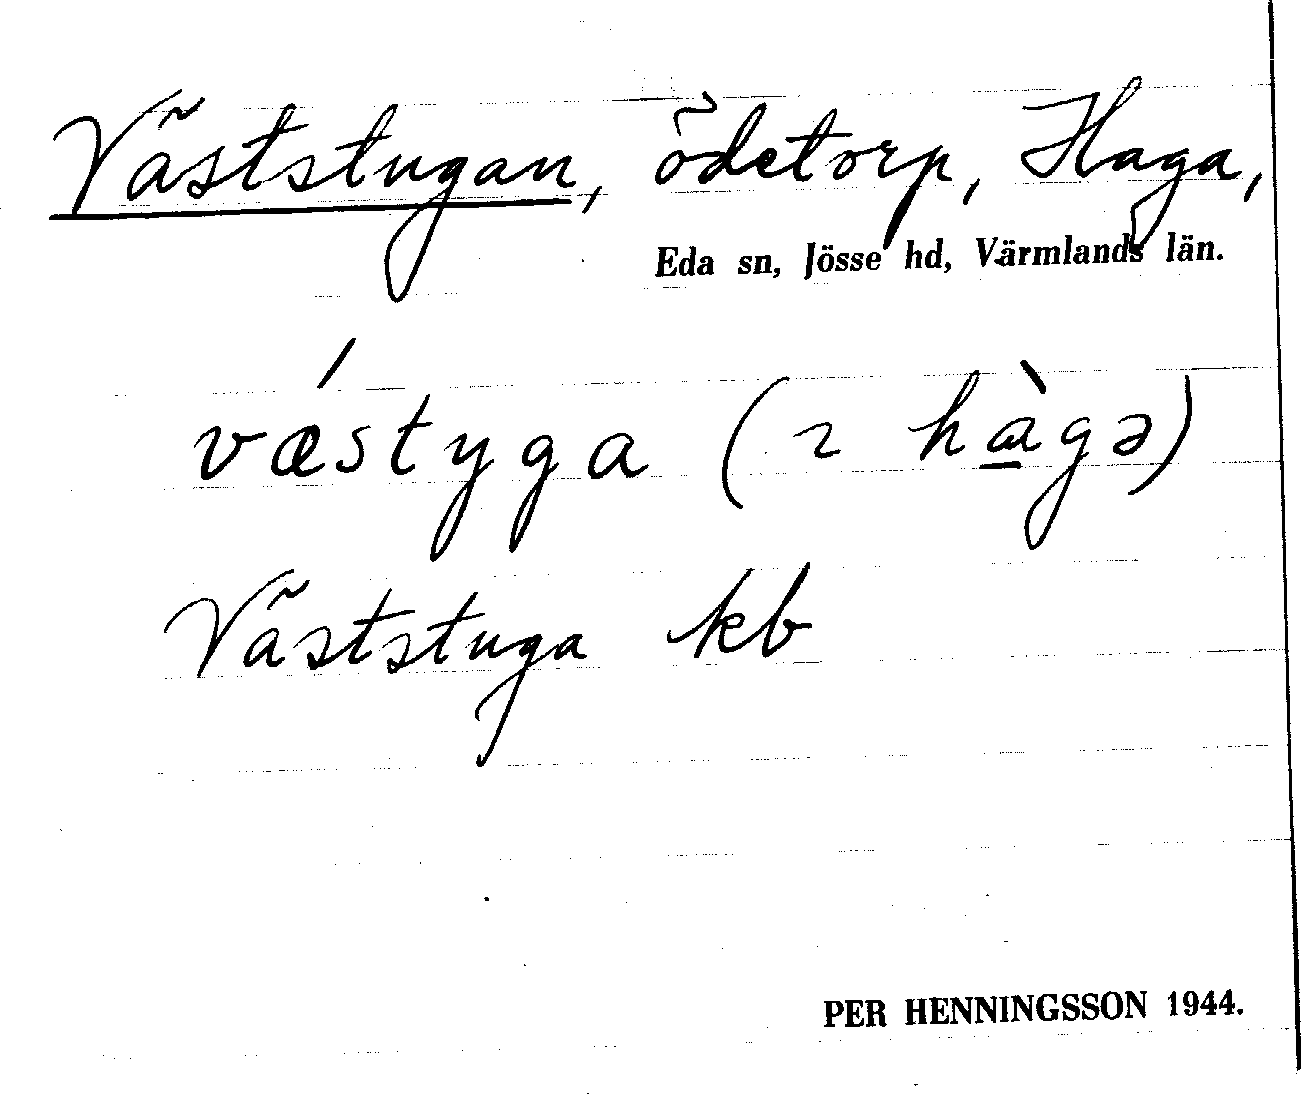 Väststugan, ödetorp, Haga,
Eda sn, Jösse hd, Värmlands län.
væ´styga (ɿ ha̲`gə)
Väststuga kb
PER HENNINGSSON 1944.